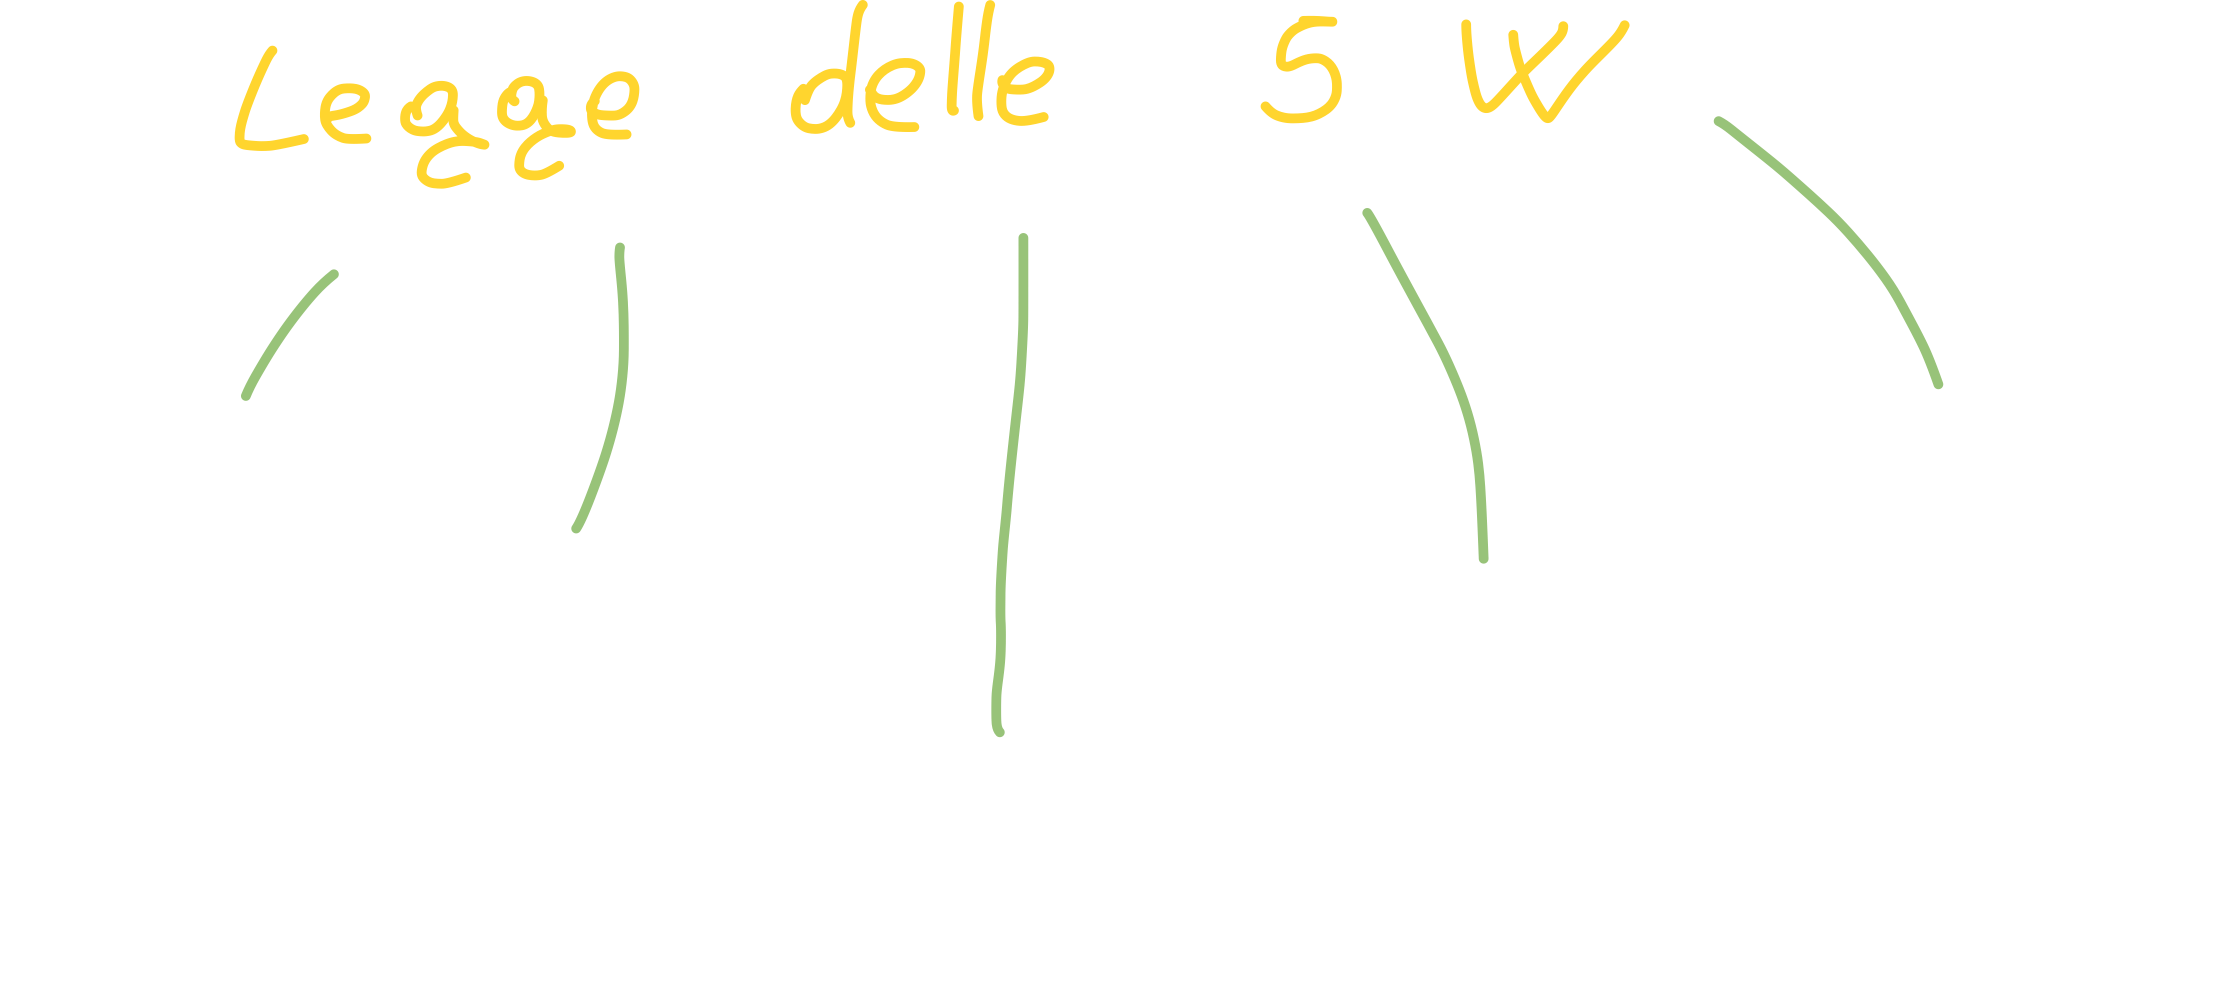 Legge delle 5 W